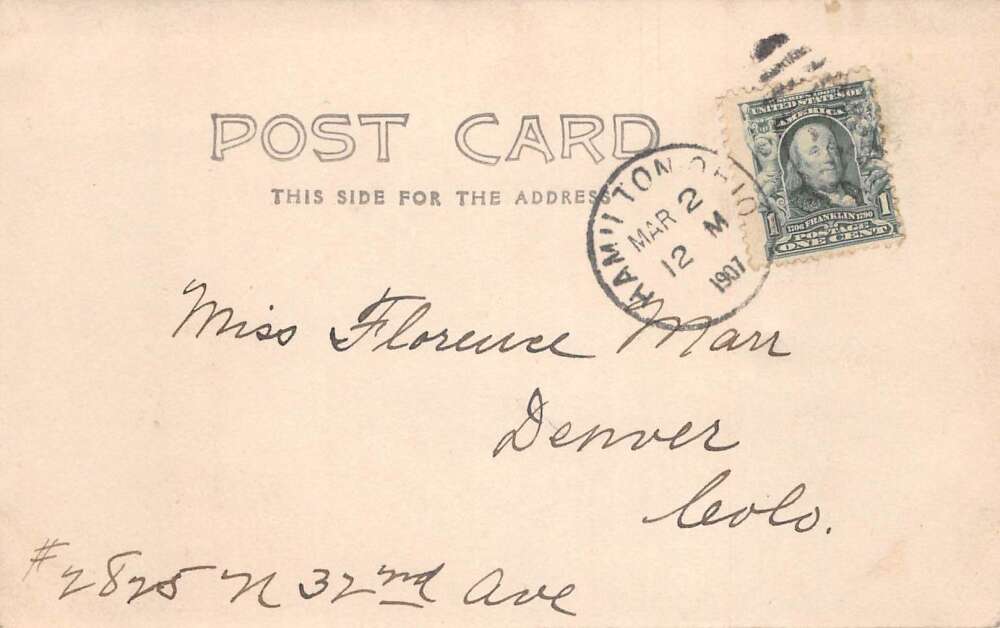 POST CARD
THIS SIDE FOR THE ADDRESS
HAMILTON OHIO
MAR 2
12 M
1907
SERIES 1902
UNITED STATES OF
AMERICA
1706 FRANKLIN 1790
1 POSTAGE 1
ONE CENT
Miss Florence Marr
Denver
Colo.
#2825 N 32nd Ave